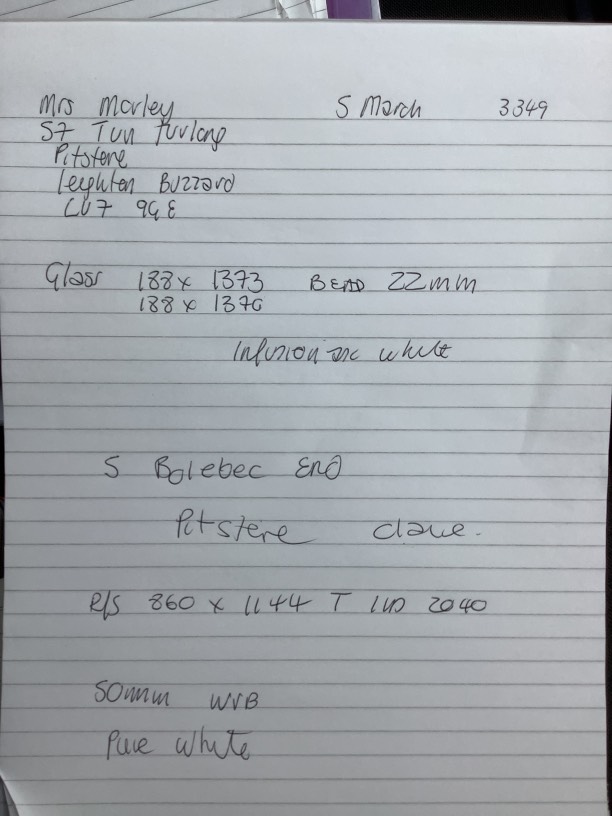 Mrs Morley 5 March 3349
57 Tun Furlong
Pitstone
Leighton Buzzard
LU7 9GE
Glass 188 x 1373 BEAD 22mm
188 x 1370
Infusion asc white
5 Bolebec End
Pitstone
R/S 860 x 1144 T 2040
50mm WVB
Pure White